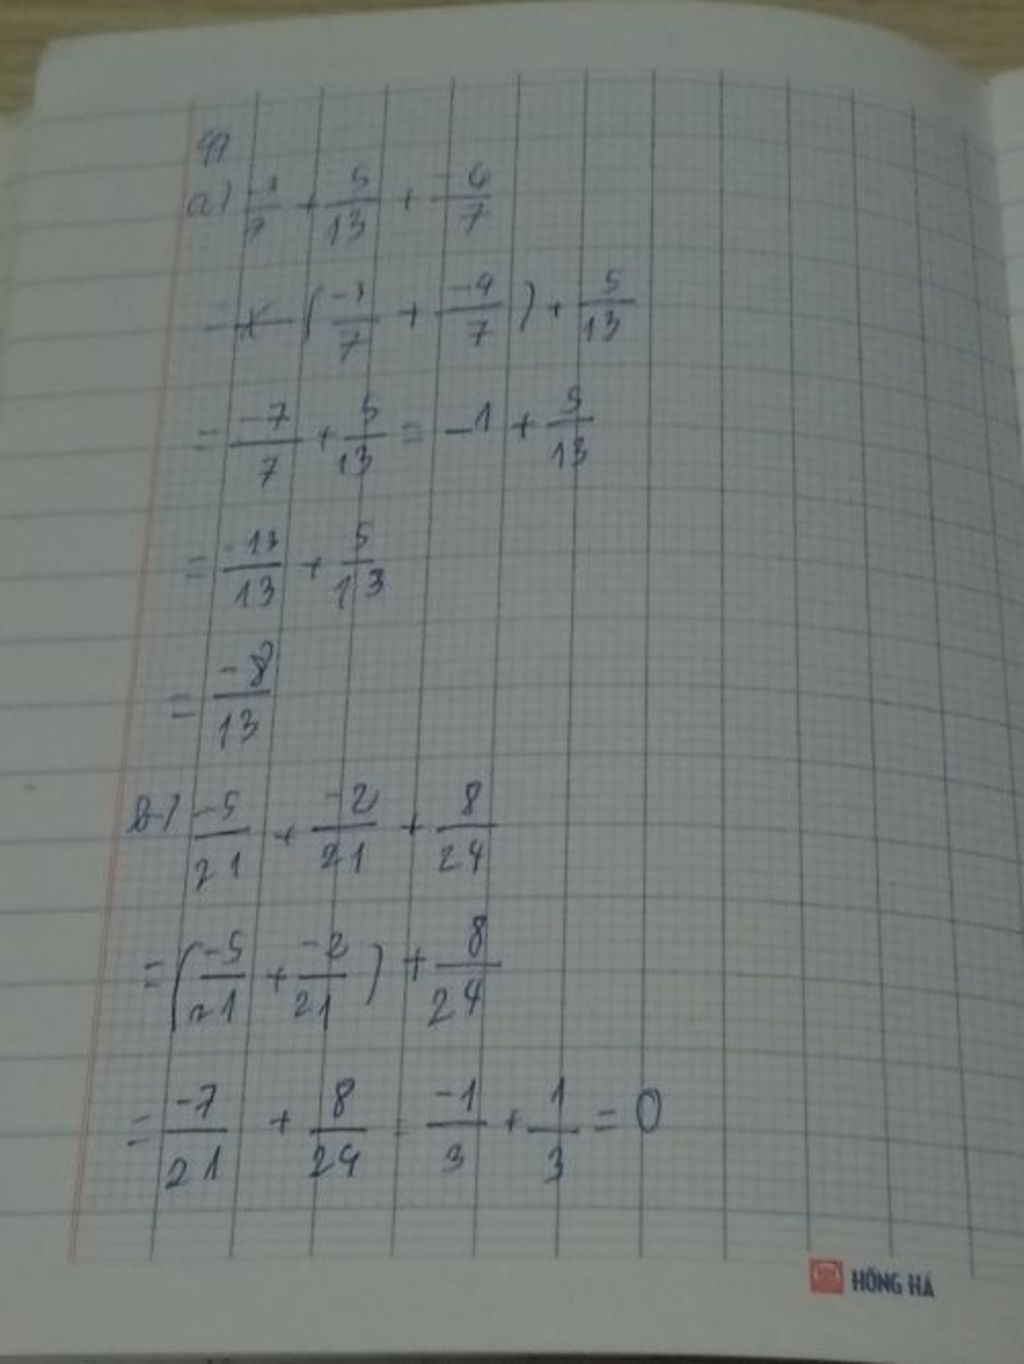 47
a) -3/7 + 5/13 + -4/7
(-3/7 + -4/7) + 5/13
= -7/7 + 5/13 = -1 + 5/13
= -13/13 + 5/13
= -8/13
b) -5/21 + -2/21 + 8/24
= (-5/21 + -2/21) + 8/24
= -7/21 + 8/24 = -1/3 + 1/3 = 0
HỒNG HÀ